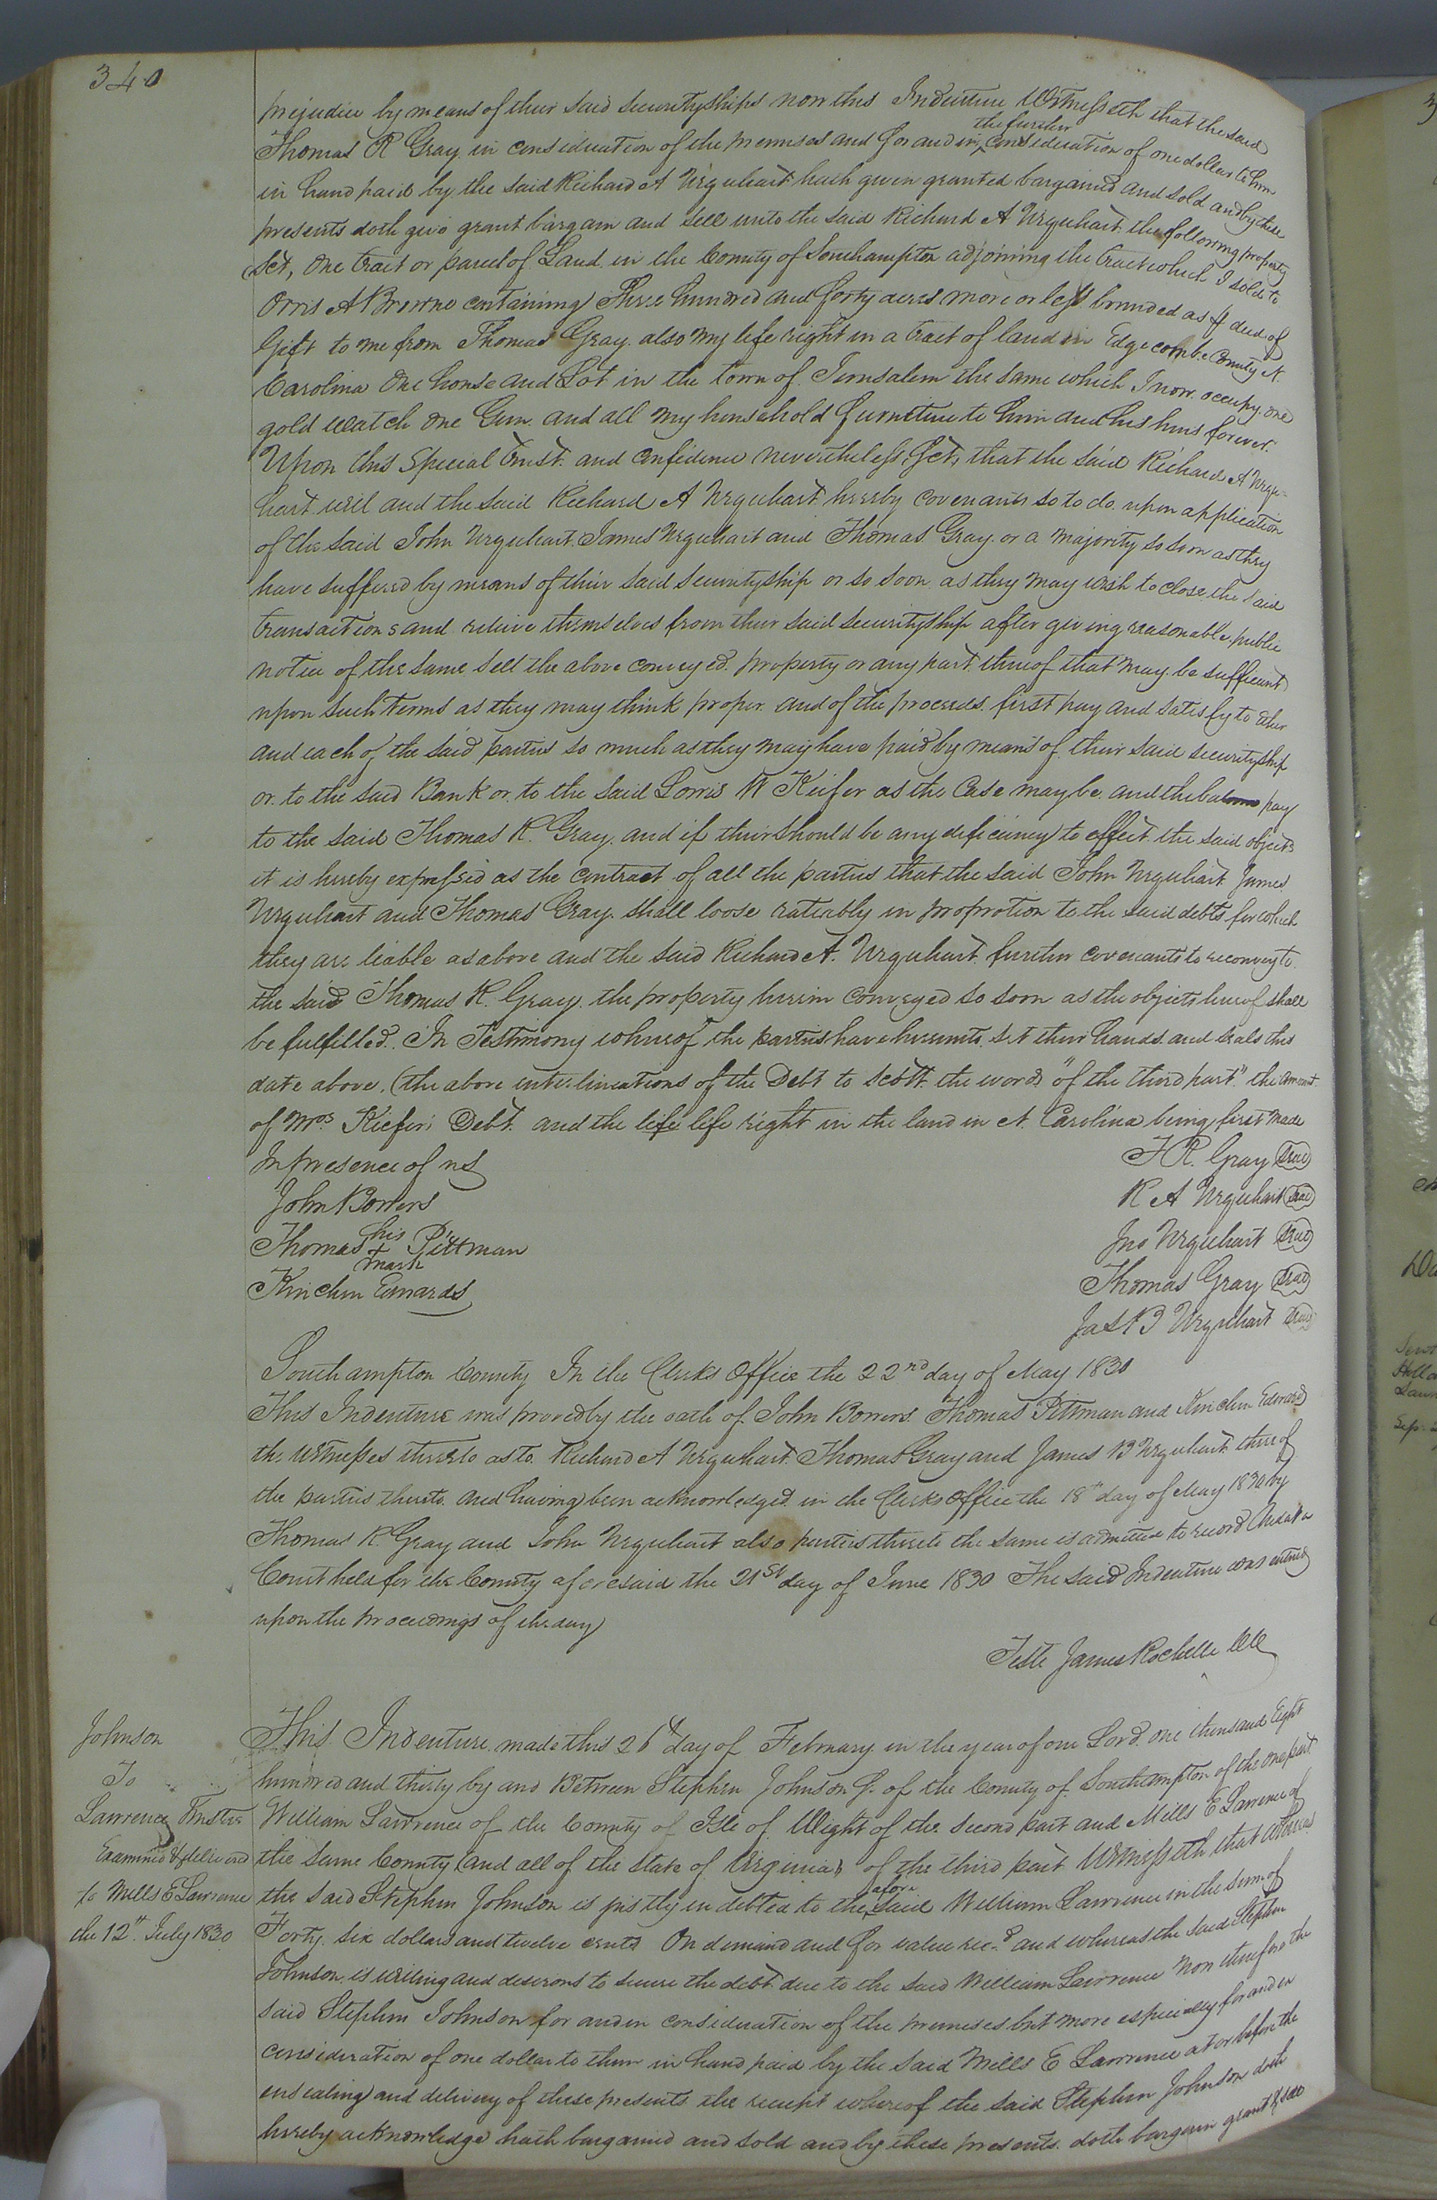 340
prejudice by means of their said securityships now this Indenture Witnesseth that the said
Thomas R Gray in consideration of the premises and for and in the further consideration of one dollar to him
in hand paid by the said Richard A Urquhart hath given granted bargained and sold and by these
presents doth give grant bargain and sell unto the said Richard A Urquhart the following property
Sct, One tract or parcel of Land in the County of Southampton adjoining the tract which I sold to
Orris A Browne containing Three hundred and forty acres more or less bounded as deed of
Gift to me from Thomas Gray. also my life right in a tract of land in Edgecombe County N.
Carolina One house and Lot in the town of Jerusalem the same which I now occupy one
gold watch one Gun. and all my household furniture to him and his heirs forever.
Upon this Special Trust and confidence nevertheless, Sct, that the said Richard A Urqu-
hart will and the said Richard A Urquhart hereby covenants so to do upon application
of the said John Urquhart James Urquhart and Thomas Gray. or a majority so soon as they
have suffered by means of their said securityship or so soon as they may wish to close the said
transactions and relieve themselves from their said securityship after giving reasonable public
notice of the same sell the above conveyed property or any part thereof that may be sufficient
upon such terms as they may think proper and of the proceeds first pay and satisfy to
and each of the said parties so much as they may have paid by means of their said securityship
or to the said Bank or to the said Lorris W Keifer as the Case may be and the pay
to the said Thomas R. Gray. and if their should be any deficiency to effect the said objects
it is hereby expressed as the contract of all the parties that the said John Urquhart James
Urquhart and Thomas Gray. shall loose rateably in proprotion to the said debts for which
they are liable as above and the said Richard A. Urquhart further covenants to reconvey to
the said Thomas R. Gray, the property herein conveyed so soon as the objects hereof shall
be fulfilled. In Testimony whereof the parties have hereunto set their hands and seals this
date above. (the above interlineations of the Debt to Scott the words "of the third part" the amount
of Mrs Kiefer's Debt. and the life life right in the land in N. Carolina being first made
In presence of us
John Bowers
Thomas his + mark Pittman
Kinchin Edwards
T R. Gray Seal
R A Urquhart Seal
Jno Urquhart Seal
Thomas Gray Seal
Jas B Urquhart Seal
Southampton County In the Clerks Office the 22nd day of May 1830
This Indenture was proved by the oath of John Bowers Thomas Pittman and Kinchin Edwards
the witnesses thereto as to Richard A Urquhart Thomas Gray and James B Urquhart three of
the parties thereto. and having been acknowledged in the Clerks Office the 18th day of May 1830 by
Thomas R. Gray and John Urquhart also parties thereto the same is admitted to record And at a
Court held for the County aforesaid the 21st day of June 1830 The said Indenture was entered
upon the proceedings of the day
Teste James Rochelle
Johnson
To
Lawrence Trustee
Examined & delivered
to Mills E Lawrence
the 12th July 1830
This Indenture made this 26 day of February in the year of our Lord one thousand Eight
hundred and thirty by and Between Stephen Johnson of the County of Southampton of the one part
William Lawrence of the County of Isle of Wight of the second part and Mills E Lawrence of
the same County (and all of the State of Virginia) of the third part Witnesseth that whereas
the said Stephen Johnson is justly indebted to the afore said William Lawrence in the sum of
Forty. six dollars and twelve cents On demand and for value recd and whereas the said Stephen
Johnson is willing and desirous to secure the debt due to the said William Lawrence Now therefore the
said Stephen Johnson for and in consideration of the premises but more especially for and in
consideration of one dollar to them in hand paid by the said Mills E Lawrence at or before the
ensealing and delivery of these presents the receipt whereof the said Stephen Johnson doth
hereby acknowledge hath bargained and sold and by these presents. doth bargain grant & sell